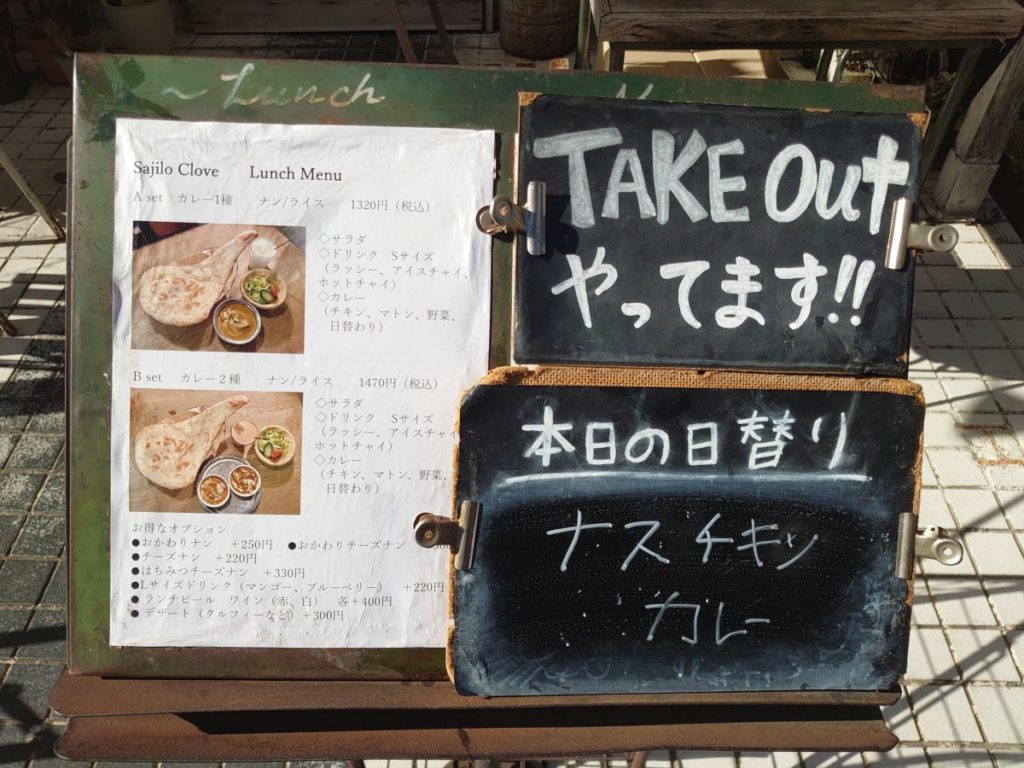 ~ Lunch
Sajilo Clove Lunch Menu
A set カレー1種 ナン/ライス 1320円（税込）
◇サラダ
◇ドリンク Sサイズ
（ラッシー、アイスチャイ、
ホットチャイ）
◇カレー
（チキン、マトン、野菜、
日替わり）
B set カレー２種 ナン/ライス 1470円（税込）
◇サラダ
◇ドリンク Sサイズ
（ラッシー、アイスチャイ
ホットチャイ）
◇カレー
（チキン、マトン、野菜、
日替わり）
お得なオプション
●おかわりナン +250円 ●おかわりチーズナン
●チーズナン +220円
●はちみつチーズナン +330円
●Lサイズドリンク（マンゴー、ブルーベリー） +220円
● ランチビール ワイン（赤、白） 各+400円
● デザート（クルフィーなど）+300円
TAKE Out
やってます!!
本日の日替り
ナスチキン
カレー